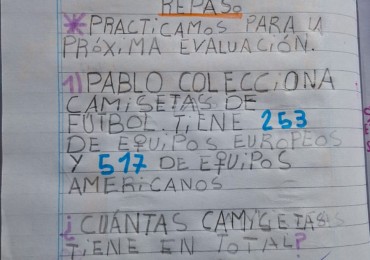 REPASO
*PRACTICAMOS PARA LA
PRÓXIMA EVALUACIÓN.
1) PABLO COLECCIONA
CAMISETAS DE
FÚTBOL. TIENE 253
DE EQUIPOS EUROPEOS
Y 517 DE EQUIPOS
AMERICANOS
¿CUÁNTAS CAMISETAS
TIENE EN TOTAL?